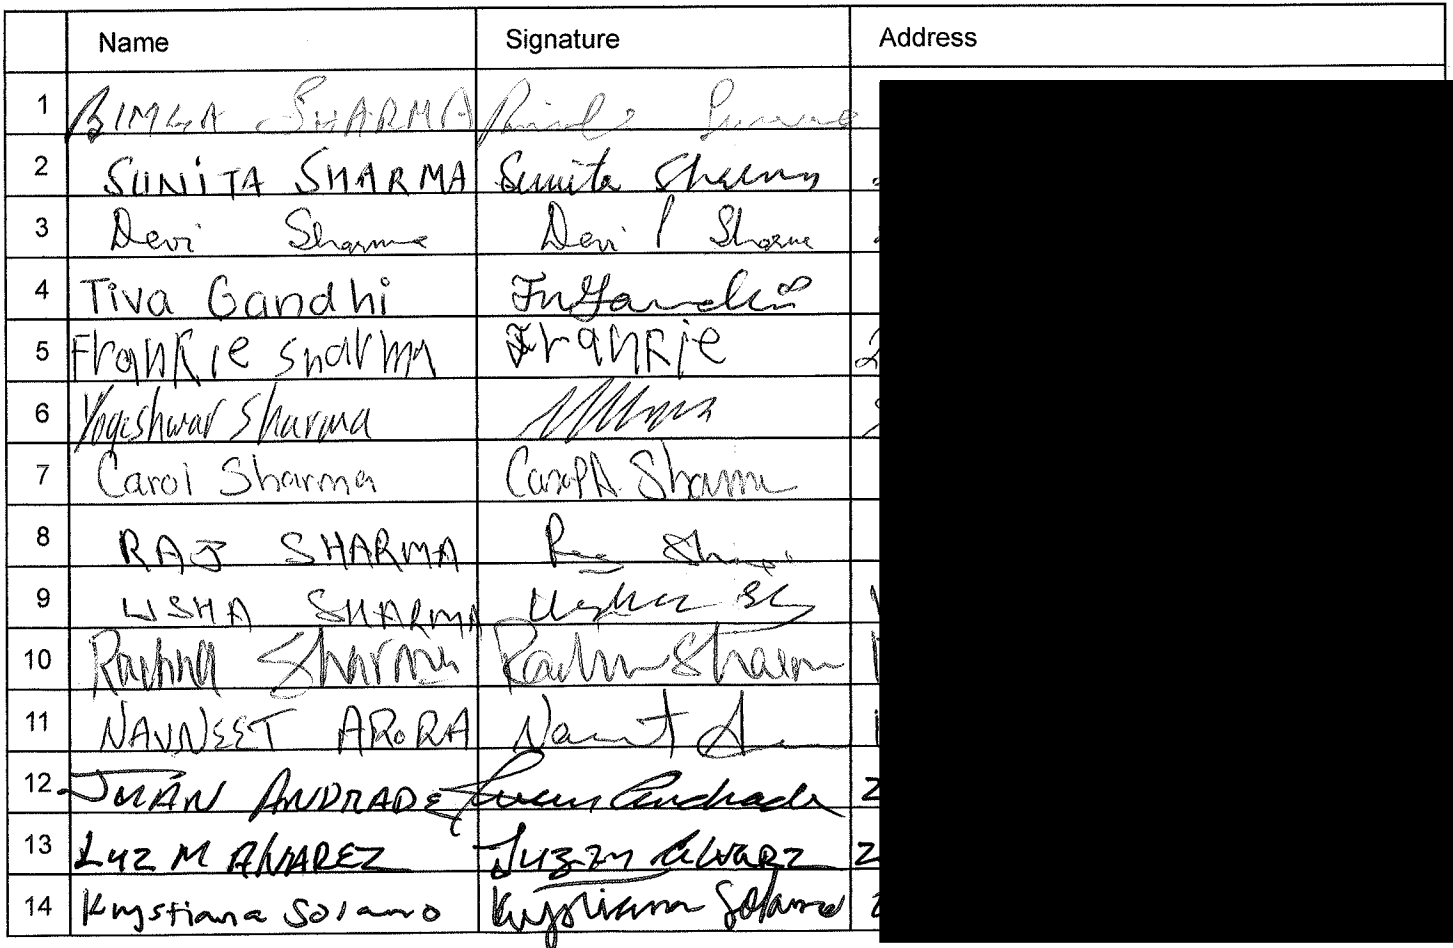 Name Signature Address
1 BIMLA SHARMA
2 SUNITA SHARMA Sunita Sharma
3 Devi Sharma Devi P Sharma
4 Tiva Gandhi
5 Frankie Sharma Frankie
6 Yogeshwar Sharma
7 Carol Sharma Carol A. Sharma
8 RAJ SHARMA
9 USHA SHARMA
10 Sharma
11 NAVNEET ARORA
12 JUAN ANDRADE Juan Andrade
13 LUZ M ALVAREZ Luz M Alvarez
14 Krystiana Solano Krystiana Solano